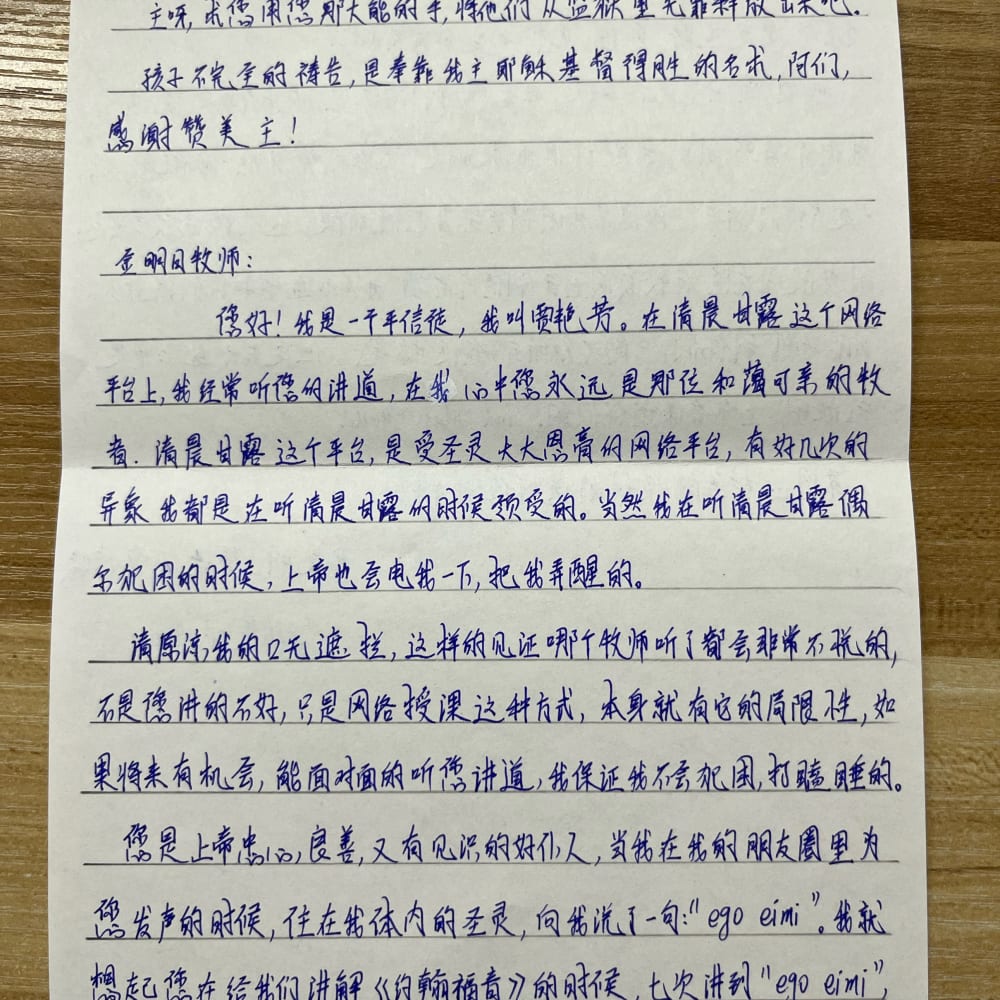 主呀，求您用您那大能的手，将他们从监狱里无罪释放出来吧。
孩子不完全的祷告，是奉靠我主耶稣基督得胜的名求，阿们，
感谢赞美主！
金明日牧师：
您好！我是一个平信徒，我叫贾艳芳。在清晨甘露这个网络
平台上，我经常听您的讲道，在我心中您永远是那位和蔼可亲的牧
者．清晨甘露这个平台，是受圣灵大大恩膏的网络平台，有好几次的
异象我都是在听清晨甘露的时候领受的。当然我在听清晨甘露偶
尔犯困的时候，上帝也会电我一下，把我弄醒的。
请原谅我的口无遮拦，这样的见证哪个牧师听了都会非常不悦的，
不是您讲的不好，只是网络授课这种方式，本身就有它的局限性，如
果将来有机会，能面对面的听您讲道，我保证我不会犯困，打瞌睡的。
您是上帝忠心，良善，又有见识的好仆人，当我在我的朋友圈里为
您发声的时候，住在我体内的圣灵，向我说了一句：“ego eimi”。我就
想起您在给我们讲解《约翰福音》的时候，七次讲到“ego eimi”，